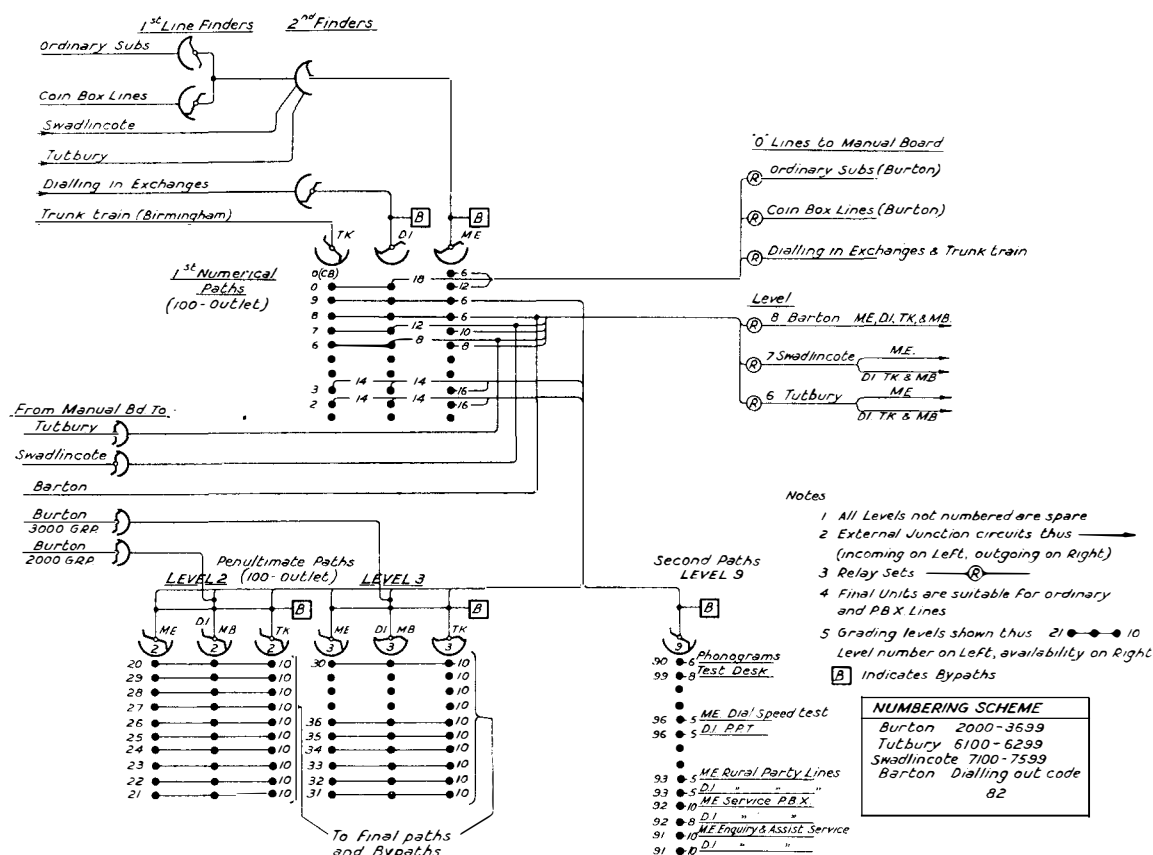 1st Line Finders
2nd Finders
Ordinary Subs
Coin Box Lines
Swadlincote
Tutbury
Dialling in Exchanges
Trunk train (Birmingham)
B
B
TK
DI
ME
1st Numerical
Paths
(100-Outlet)
0(CB)
0
9
8
7
6
3
2
18
12
8
14
14
14
14
6
12
6
6
10
8
16
16
"O" Lines to Manual Board
R Ordinary Subs (Burton)
R Coin Box Lines (Burton)
R Dialling in Exchanges & Trunk train
Level
R 8 Barton ME, DI, TK, & MB.
R 7 Swadlincote ME.
DI TK & MB
R 6 Tutbury ME
DI TK & MB
From Manual Bd To
Tutbury
Swadlincote
Barton
Burton
3000 GRP.
Burton
2000 GRP
Penultimate Paths
(100-outlet)
LEVEL 2
LEVEL 3
B
B
ME
DI
MB
TK
ME
DI
MB
TK
2
2
2
3
3
3
20 10
29 10
28 10
27 10
26 10
25 10
24 10
23 10
22 10
21 10
30 10
10
10
10
36 10
35 10
34 10
33 10
32 10
31 10
To Final paths
and Bypaths
Second Paths
LEVEL 9
B
9
90 6 Phonograms
99 8 Test Desk
96 5 ME. Dial Speed test
96 5 D.I. P.P.T
93 5 ME Rural Party Lines
93 5 D.I. " " "
92 10 ME Service P.B.X.
92 8 D.I. " "
91 10 M.E Enquiry & Assist Service
91 10 D.I. " "
Notes
1 All Levels not numbered are spare
2 External Junction circuits thus
(incoming on Left, outgoing on Right)
3 Relay Sets R
4 Final Units are suitable for ordinary
and P.B.X. Lines
5 Grading levels shown thus 21 10
Level number on Left, availability on Right
B Indicates Bypaths
NUMBERING SCHEME
Burton 2000-3699
Tutbury 6100-6299
Swadlincote 7100-7599
Barton Dialling out code
82